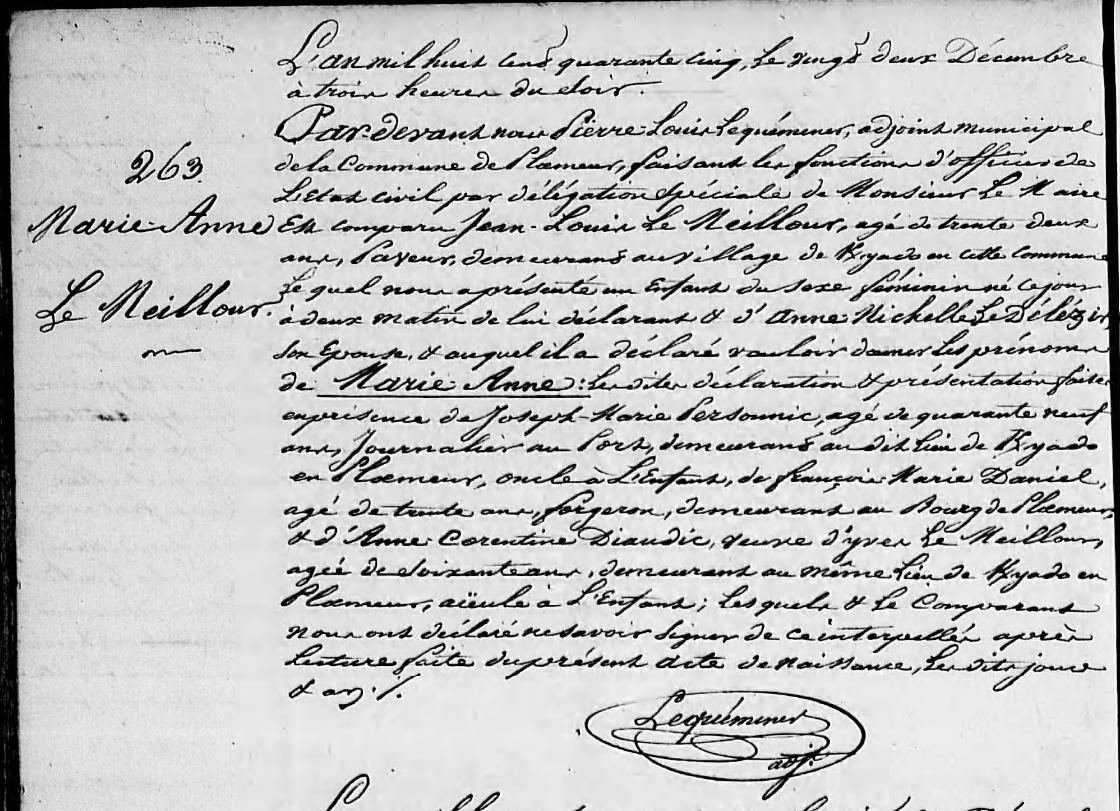 L'an mil huit cent quarante cinq, le vingt deux Décembre
à trois heures du soir.
Par-devant nous Pierre Louis Lequémener, adjoint municipal
de la Commune de Plœmeur, faisant les fonctions d'officier de
L'Etat civil par délégation Spéciale de Monsieur Le Maire
263.
Marie-Anne
Le Meillour.
Est comparu Jean-Louis Le Meillour, agé de trente deux
ans, Paveur, demeurant au village de Kyado en cette commune
Le quel nous a présenté un Enfant du sexe féminin né ce jour
à deux matin de lui déclarant & d'Anne Michelle Le Délézir
son Epouse, & auquel il a déclaré vouloir donner les prénoms
de Marie Anne: Les dites déclaration & présentation faites
en présence de Joseph-Marie Personnic, agé de quarante neuf
ans, Journalier au Port, demeurant au dit lieu de Kyado
en Plœmeur, oncle à L'Enfant, de françois Marie Daniel,
agé de trente ans, forgeron, demeurant au Bourg de Plœmeur,
& d'Anne Corentine Diaudic, veuve d'yves Le Meillour,
agée de soixante ans, demeurant au même Lieu de Kyado en
Plœmeur, aïeule à L'Enfant; Lesquels & Le Comparant
nous ont déclaré ne savoir Signer de ce interpellés après
Lecture faite du présent acte de naissance, Les dits jour
& an ./.
Lequémener
adjt.